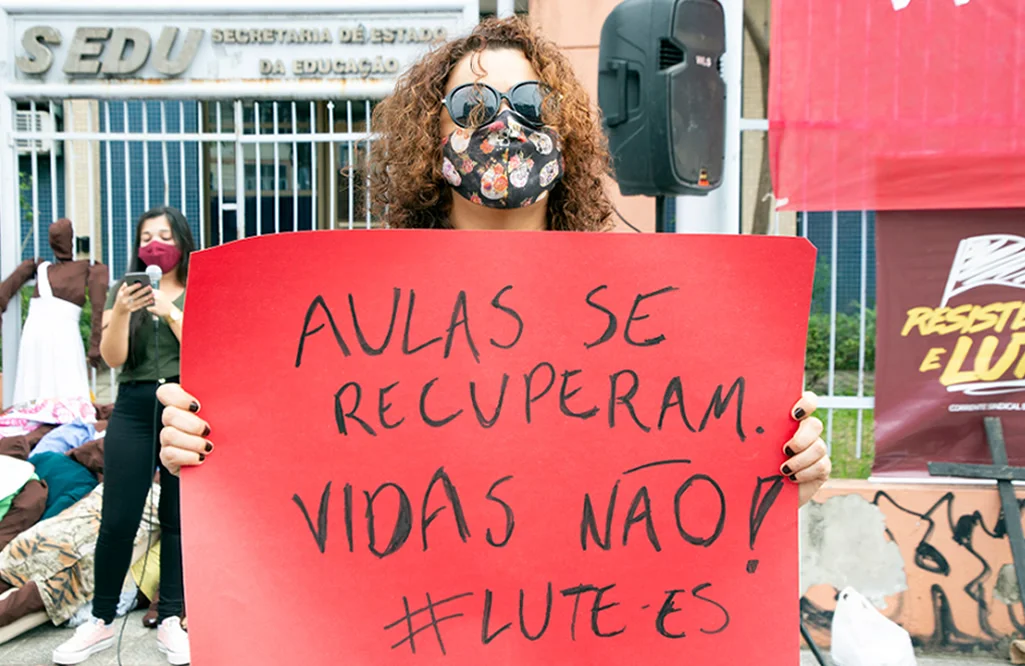 SEDU
SECRETARIA DE ESTADO
DA EDUCAÇÃO
AULAS SE
RECUPERAM.
VIDAS NÃO!
#LUTE-ES
E
CORRENTE SINDICAL